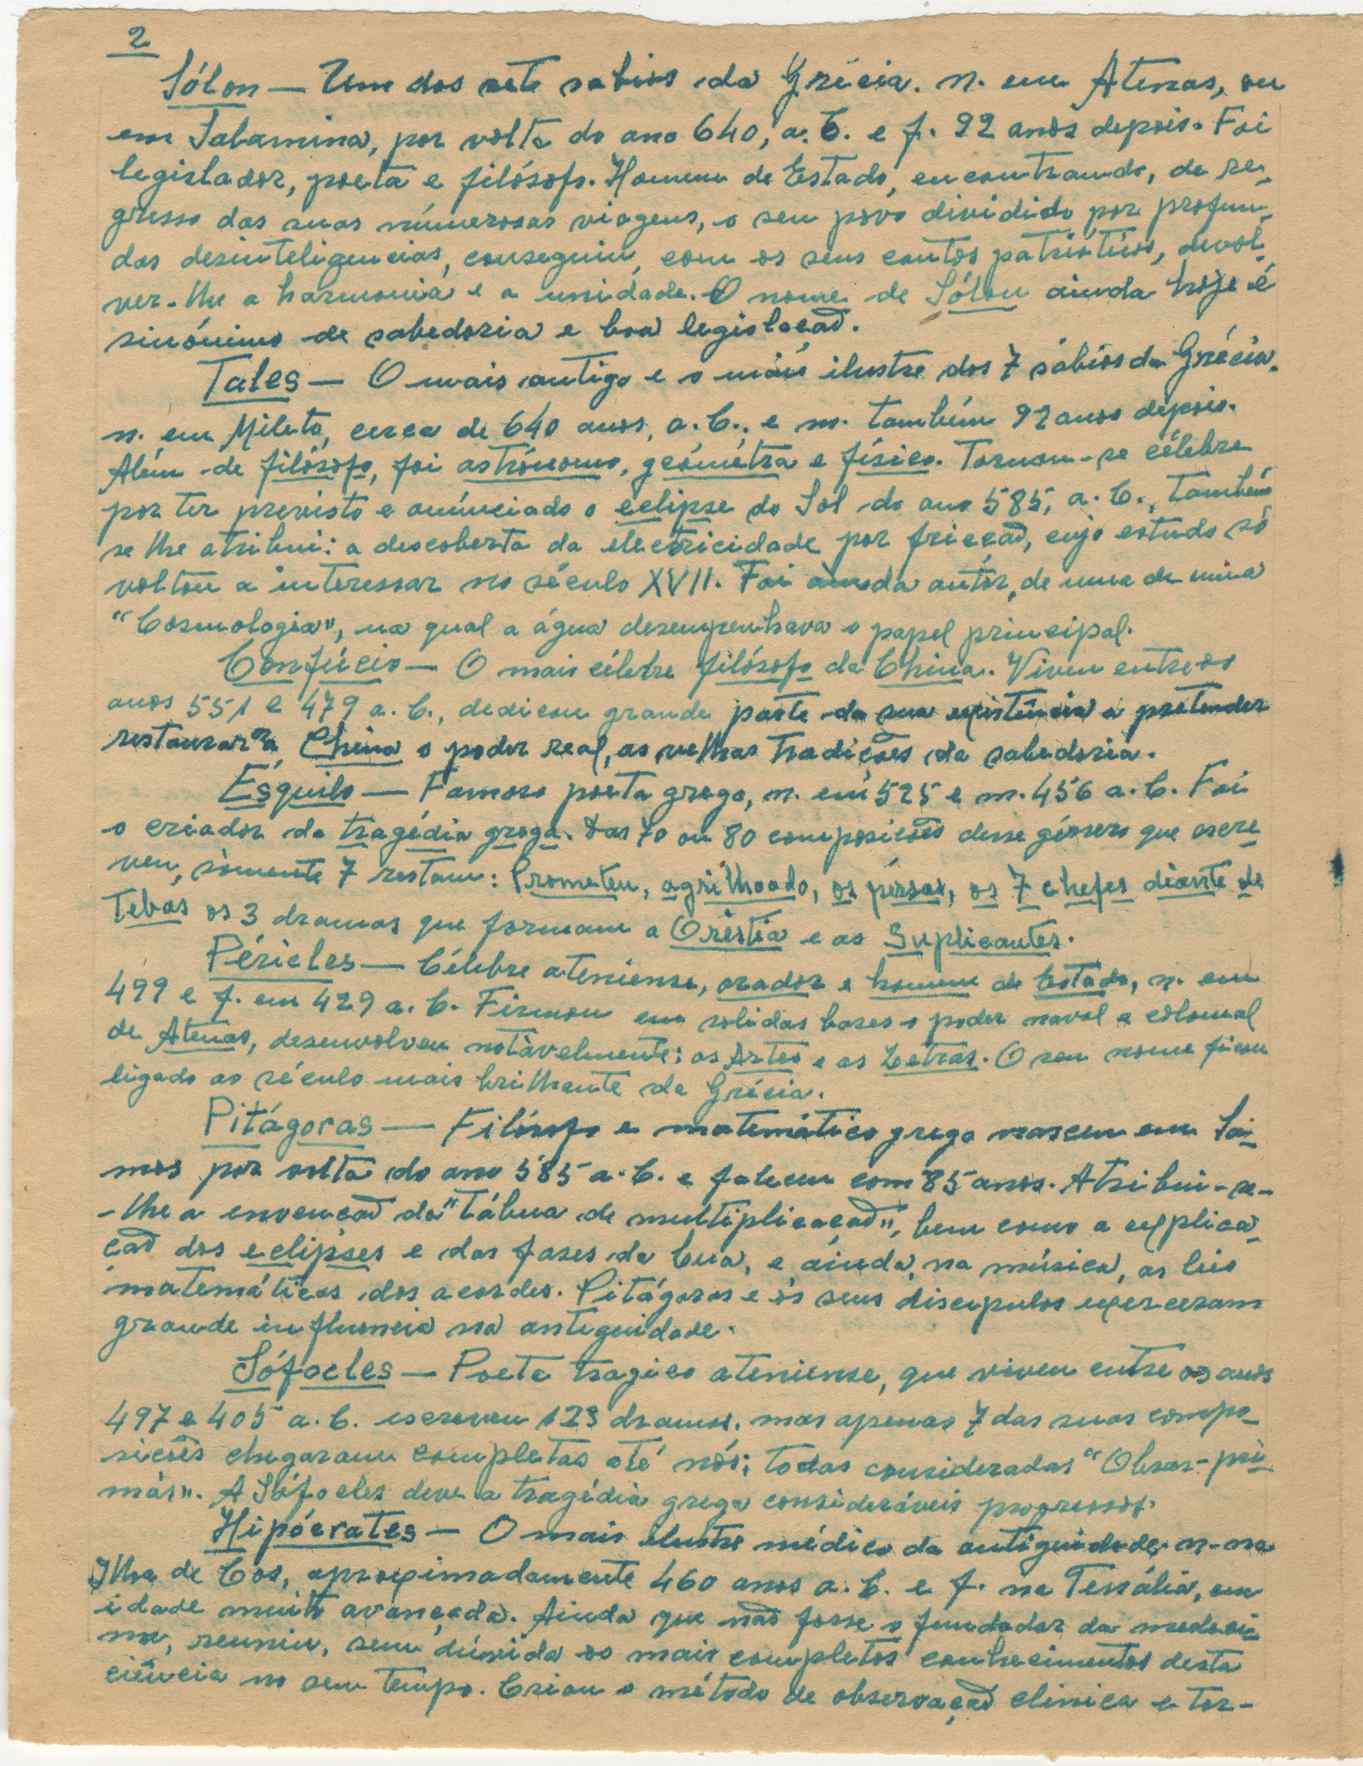 2
Sólon — Um dos sete sabios da Grécia. n. em Atenas, ou
em Salamina, por volta do ano 640, a. C. e f. 92 anos depois. Foi
legislador, poeta e filósofo. Homem de Estado, encontrando, de re-
gresso das suas númerosas viagens, o seu povo dividido por profun-
das desinteligencias, conseguiu, com os seus cantos patrioticos, devol-
ver-lhe a harmonia e a unidade. O nome de Sólon ainda hoje é
sinónimo de sabedoria e boa legislacaõ.
Tales — O mais antigo e o mais ilustre dos 7 sábios da Grécia.
n. em Mileto, cerca de 640 anos, a. C., e m. também 92 anos depois.
Além de filósofo, foi astrónomo, geómetra e físico. Tornou-se célebre
por ter previsto e anúnciado o eclipse do Sol do ano 585, a. C., também
se lhe atribui: a descoberta da electricidade por fricçaõ, cujo estudo só
voltou a interessar no século XVII. Foi ainda autor, de uma de uma
"Cosmologia", na qual a água desempenhava o papel principal.
Confúcio — O mais célebre filósofo da China. Viveu entre os
anos 551 e 479 a. C., dedicou grande parte da sua existência a pretender
restaurar na China o poder real, as velhas tradições da sabedoria.
Ésquilo — Famoso poeta grego, n. em 525 e m. 456 a. C. Foi
o criador da tragédia grega. Das 70 ou 80 composicões desse género que escre-
veu, sòmente 7 restam: Prometeu, agrilhoado, os pérsas, os 7 chefes diante de
Tebas os 3 dramas que formam a Oréstia e as Suplicantes.
Péricles — Célebre ateniense, orador e homem de Estado, n. em
499 e f. em 429 a. C. Firmou em solidas bases o poder naval e colonial
de Atenas, desenvolveu notàvelmente: as Artes e as Letras. O seu nome ficou
ligado ao século mais brilhante da Grécia.
Pitágoras — Filósofo e matemático grego nasceu em Sa-
mos por volta do ano 585 a. C. e faleceu com 85 anos. Atribui-se-
-lhe a envencaõ da "Tábua de multiplicacaõ", bem como a explica-
caõ dos eclipses e das fases da Lua, e ainda, na música, as leis
matemáticas dos acordes. Pitágoras e os seus discipulos exerceram
grande influencia na antiguidade.
Sófocles — Poeta tragico ateniense, que viveu entre os anos
497 e 405 a. C. escreveu 123 dramas, mas apenas 7 das suas compo-
sicoẽs chegaram completas até nós; todas consideradas "Obras-pri-
mas". A Sófocles deve a tragédia grega consideráveis progressos.
Hipócrates — O mais ilustre médico da antiguidade, n. na
Ilha de Cos, aproximadamente 460 anos a. C. e f. na Tessália, em
idade muito avançada. Ainda que naõ fosse o fundador da medici-
na, reuniu, sem dúvida os mais completos conhecimentos desta
ciência no seu tempo. Criou o método de observaçaõ clinica e tor-